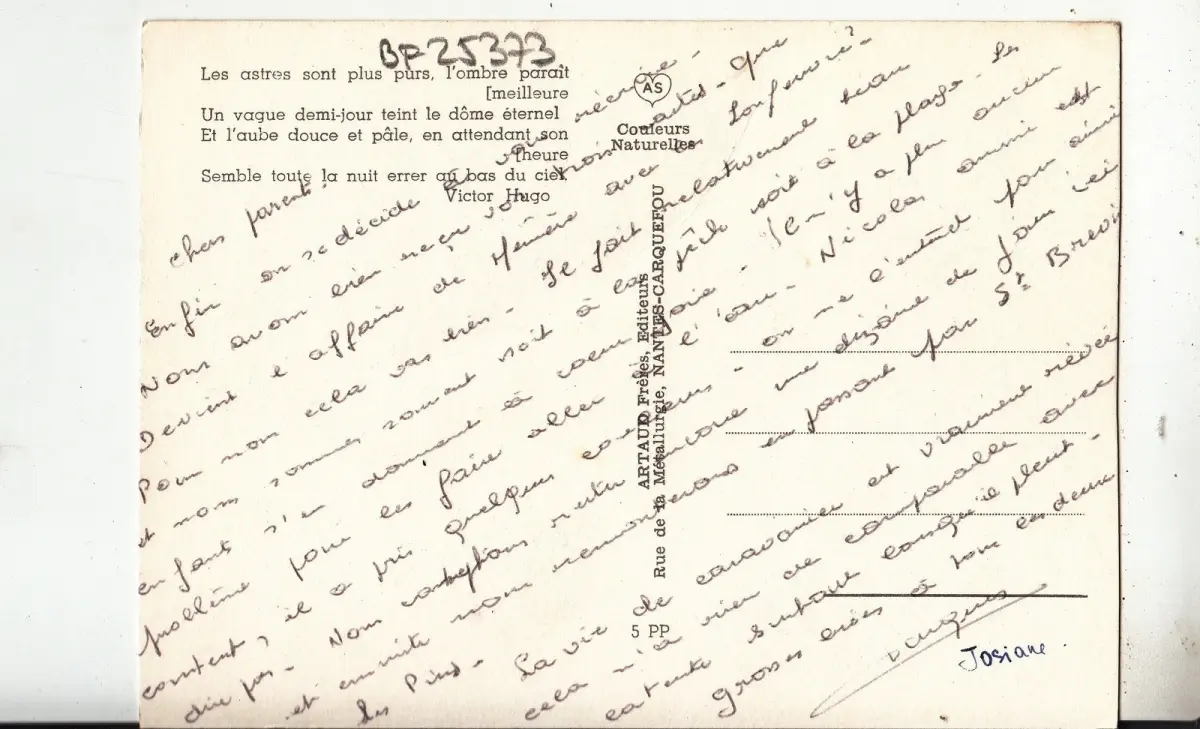 BF 25373
Les astres sont plus purs, l'ombre paraît
[meilleure
Un vague demi-jour teint le dôme éternel
Et l'aube douce et pâle, en attendant son
[heure
Semble toute la nuit errer au bas du ciel,
Victor Hugo
AS
Couleurs
Naturelles
ARTAUD Frères, Editeurs
Rue de la Métallurgie, NANTES-CARQUEFOU
5 PP
chers parents.
Enfin on se décide à vous écrire -
Nous avons bien reçu vos trois cartes - Que
Devient l'affaire de Mémère avec les
Pour nous cela va bien - Il fait relativement beau
et nous sommes souvent soit à la pêche soit à la plage - Les
enfants s'en donnent à coeur joie - Il n'y a plus aucun
problème pour les faire aller à l'eau - Nicolas aussi est
content, il a pris quelques couleurs - on ne l'entend pour ainsi
dire pas - Nous comptons rester encore une dizaine de jours ici
et ensuite nous remonterons en passant par St Brevin
les Pins - La vie de caravanier est vraiment rêvée
cela n'a rien de comparable avec
la tente surtout lorsqu'il pleut -
grosses bises à tous les deux
Jacques
Josiane.